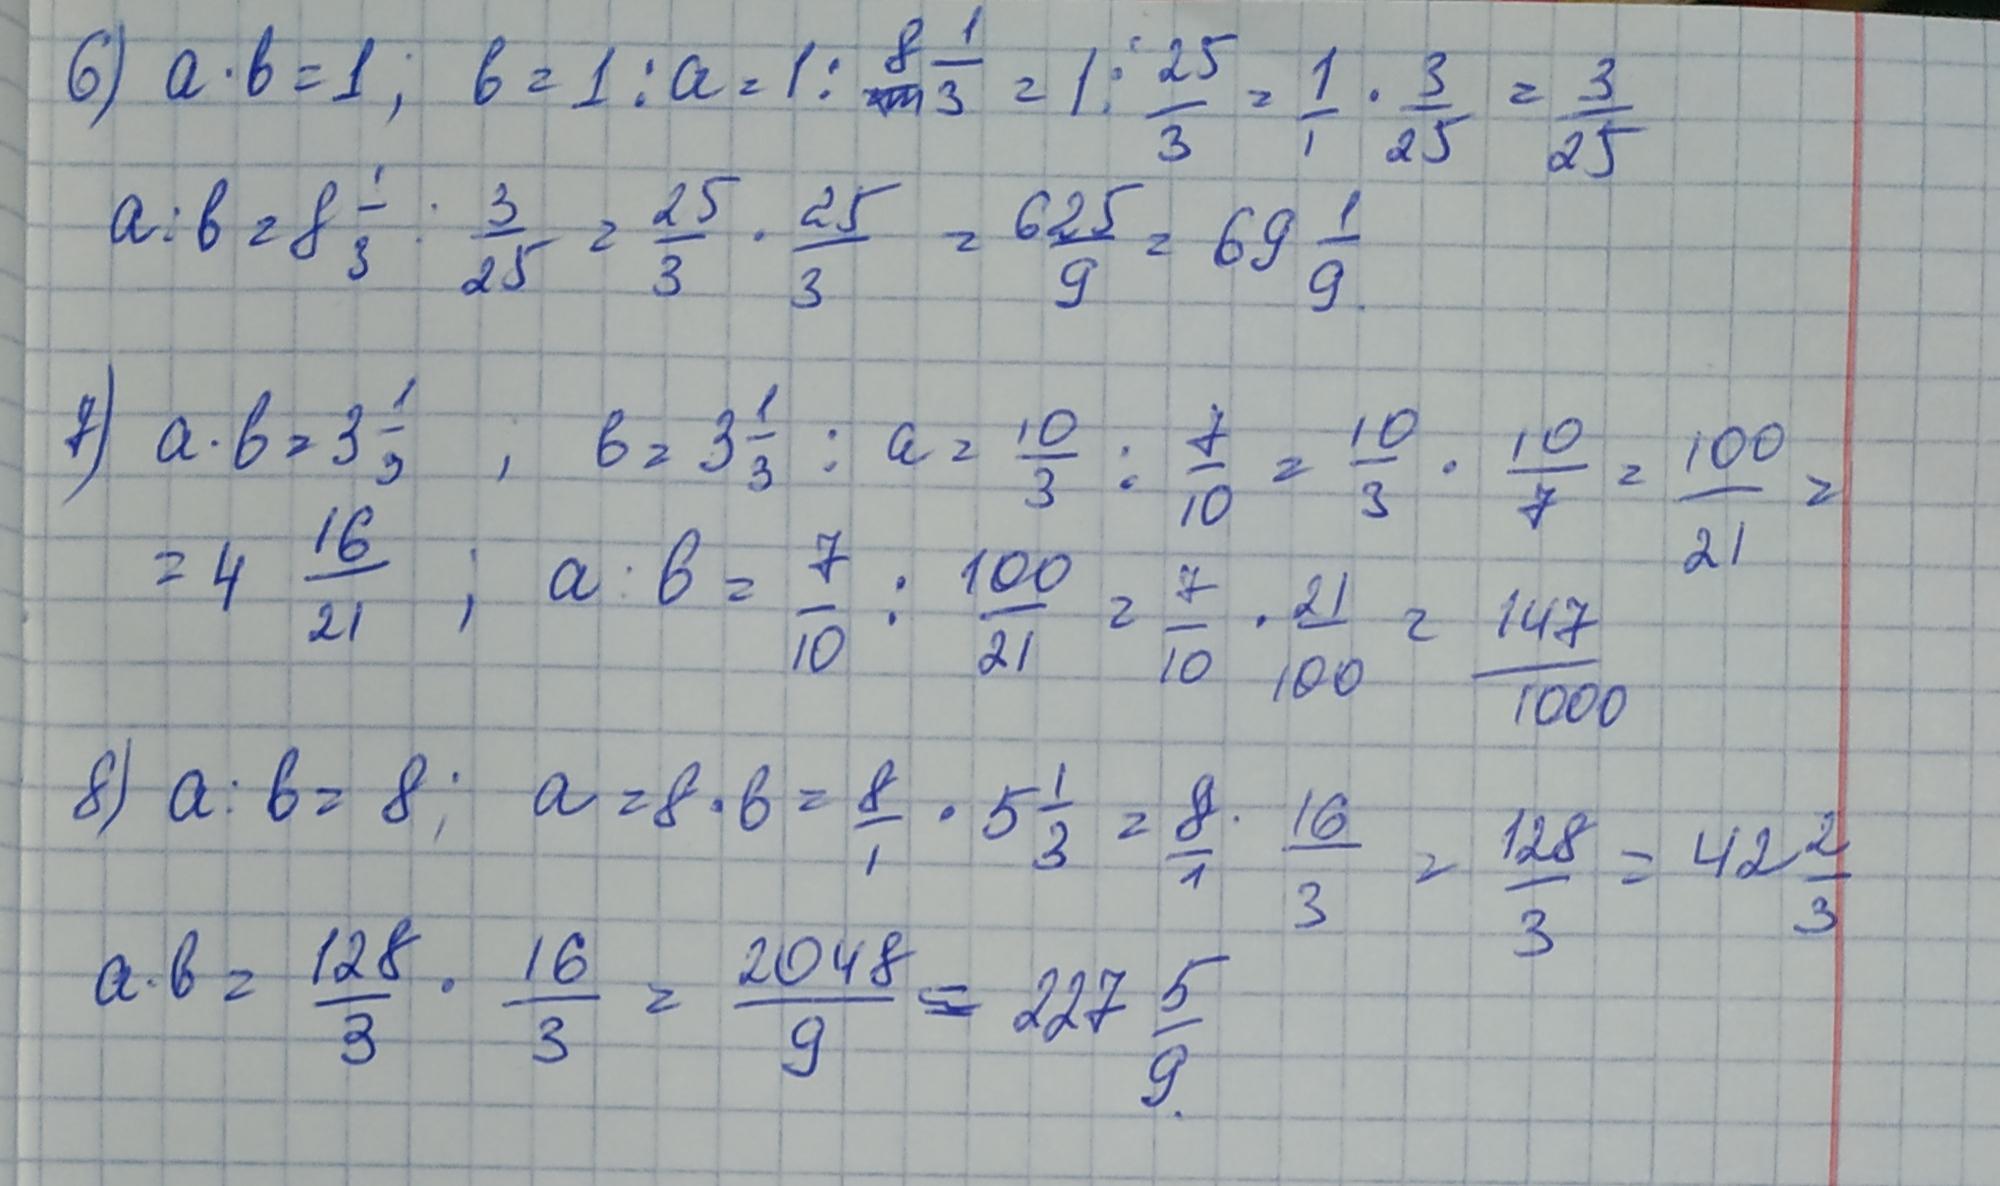 6) a·b=1; b=1:a=1:8 1/3=1:25/3=1/1·3/25=3/25
a:b=8 1/3:3/25=25/3·25/3=625/9=69 1/9.
7) a·b=3 1/3; b=3 1/3:a=10/3:7/10=10/3·10/7=100/21=
=4 16/21; a:b=7/10:100/21=7/10·21/100=147/1000
8) a:b=8; a=8·b=8/1·5 1/3=8/1·16/3=128/3=42 2/3
a·b=128/3·16/3=2048/9=227 5/9.